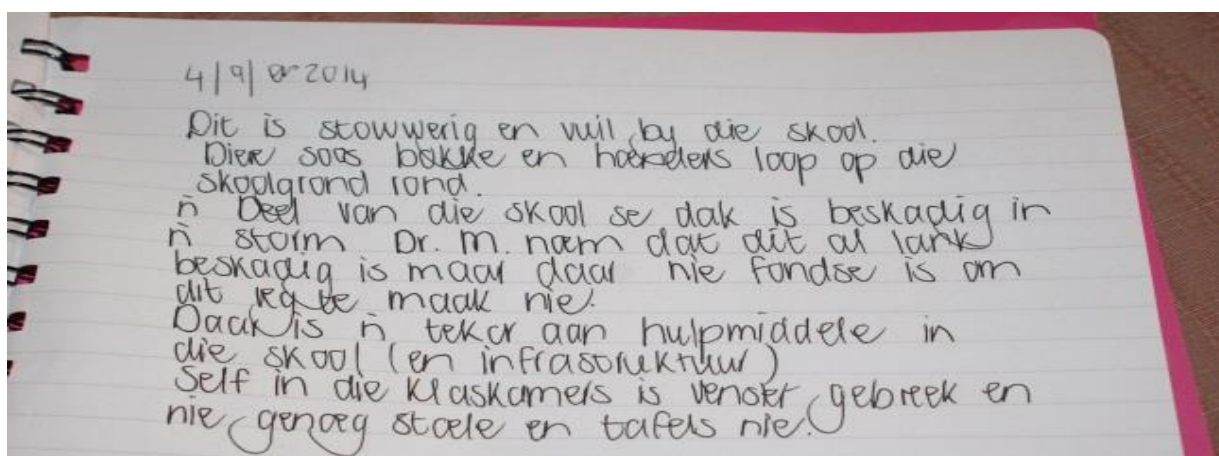 4/9/ 2014
Dit is stowwerig en vuil by die skool.
Diere soos bokke en hoenders loop op die
skoolgrond rond.
ň Deel van die skool se dak is beskadig in
ň storm Dr. M. noem dat dit al lank
beskadig is maar daar nie fondse is om
dit reg te maak nie.
Daar is ň tekor aan hulpmiddele in
die skool (en infrastruktuur)
Self in die klaskamers is venster gebreek en
nie genoeg stoele en tafels nie.